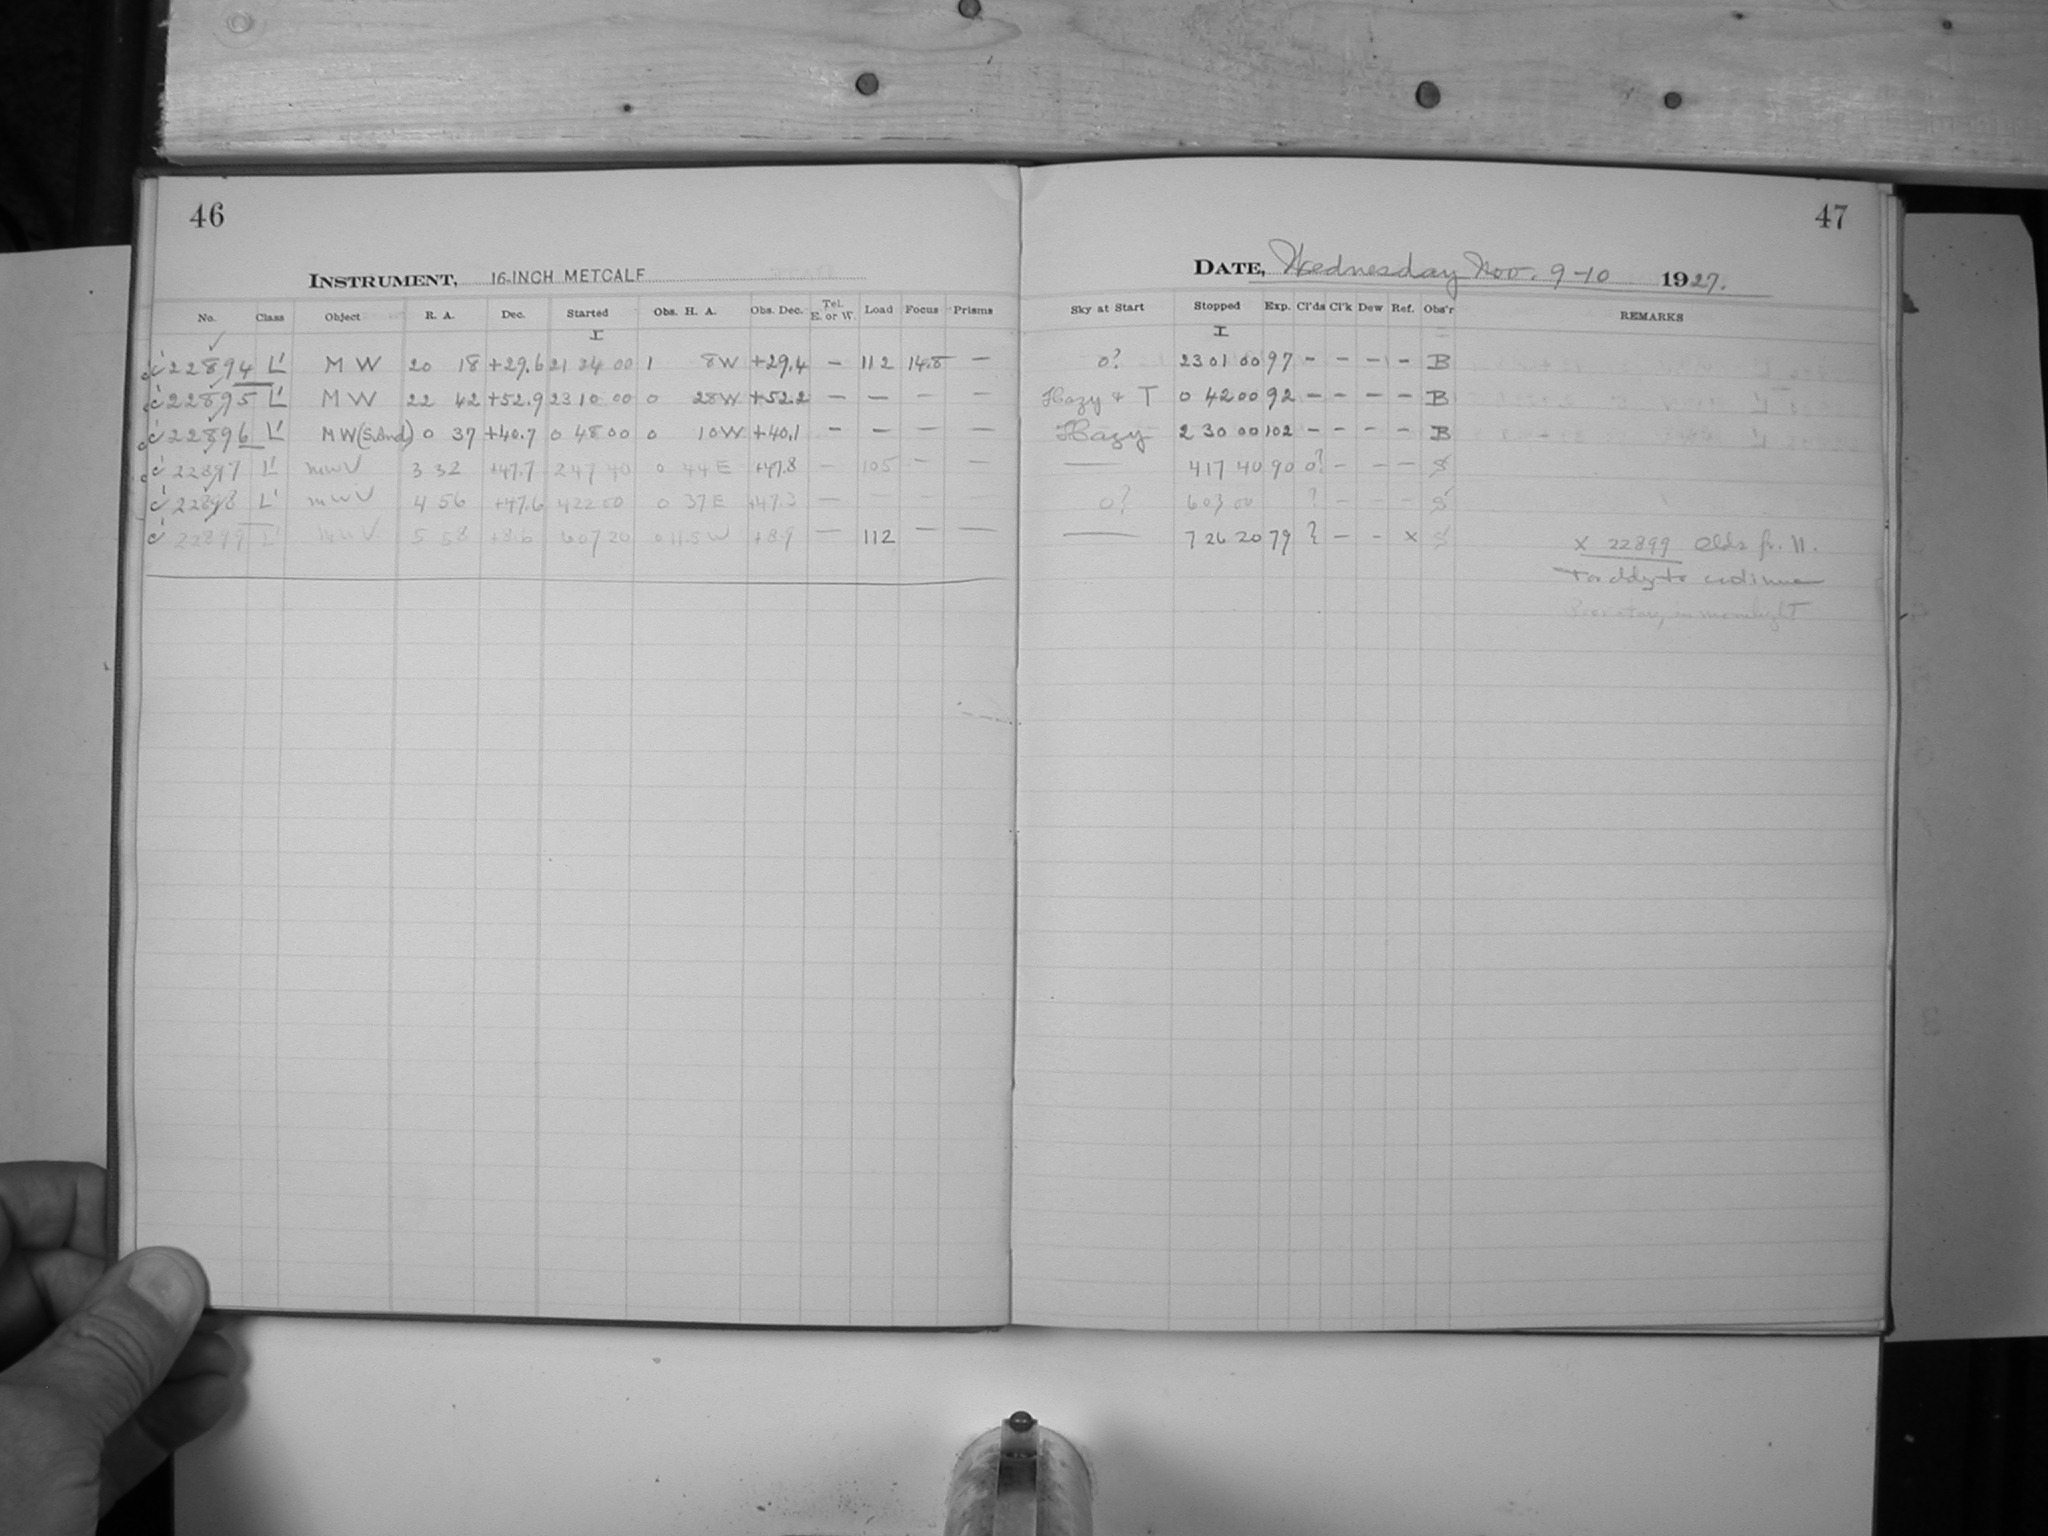 46
INSTRUMENT, 16-INCH METCALF
No. Class Object R. A. Dec. Started Obs. H. A. Obs. Dec. Tel. E. or W. Load Focus Prisms
I
22894 L' M W 20 18 +29.6 21 24 00 1 8W +29.4 — 112 14.8 —
22895 L' M W 22 42 +52.9 23 10 00 0 28W +52.2 — — — —
22896 L' M W (S. And) 0 37 +40.7 0 48 00 0 10W +40.1 — — — —
22897 L' MWV 3 32 +47.7 2 47 40 0 44 E +47.8 — 105 — —
22898 L' MWV 4 56 +47.6 4 22 00 0 37 E +47.3 — — — —
22899 L' MWV 5 58 +8.6 6 07 20 0 11.5 W +8.9 — 112 — —
47
DATE, Wednesday Nov. 9-10 1927.
Sky at Start Stopped Exp. Cl'ds Cl'k Dew Ref. Obs'r REMARKS
I
0? 23 01 00 97 — — — — B
Hazy + T 0 42 00 92 — — — — B
Hazy 2 30 00 102 — — — — B
— 4 17 40 90 0? — — — S
0? 6 03 00 ? — — — S
— 7 26 20 79 ? — — x S x 22899 Clds fr. 11.
to continue
in moonlight